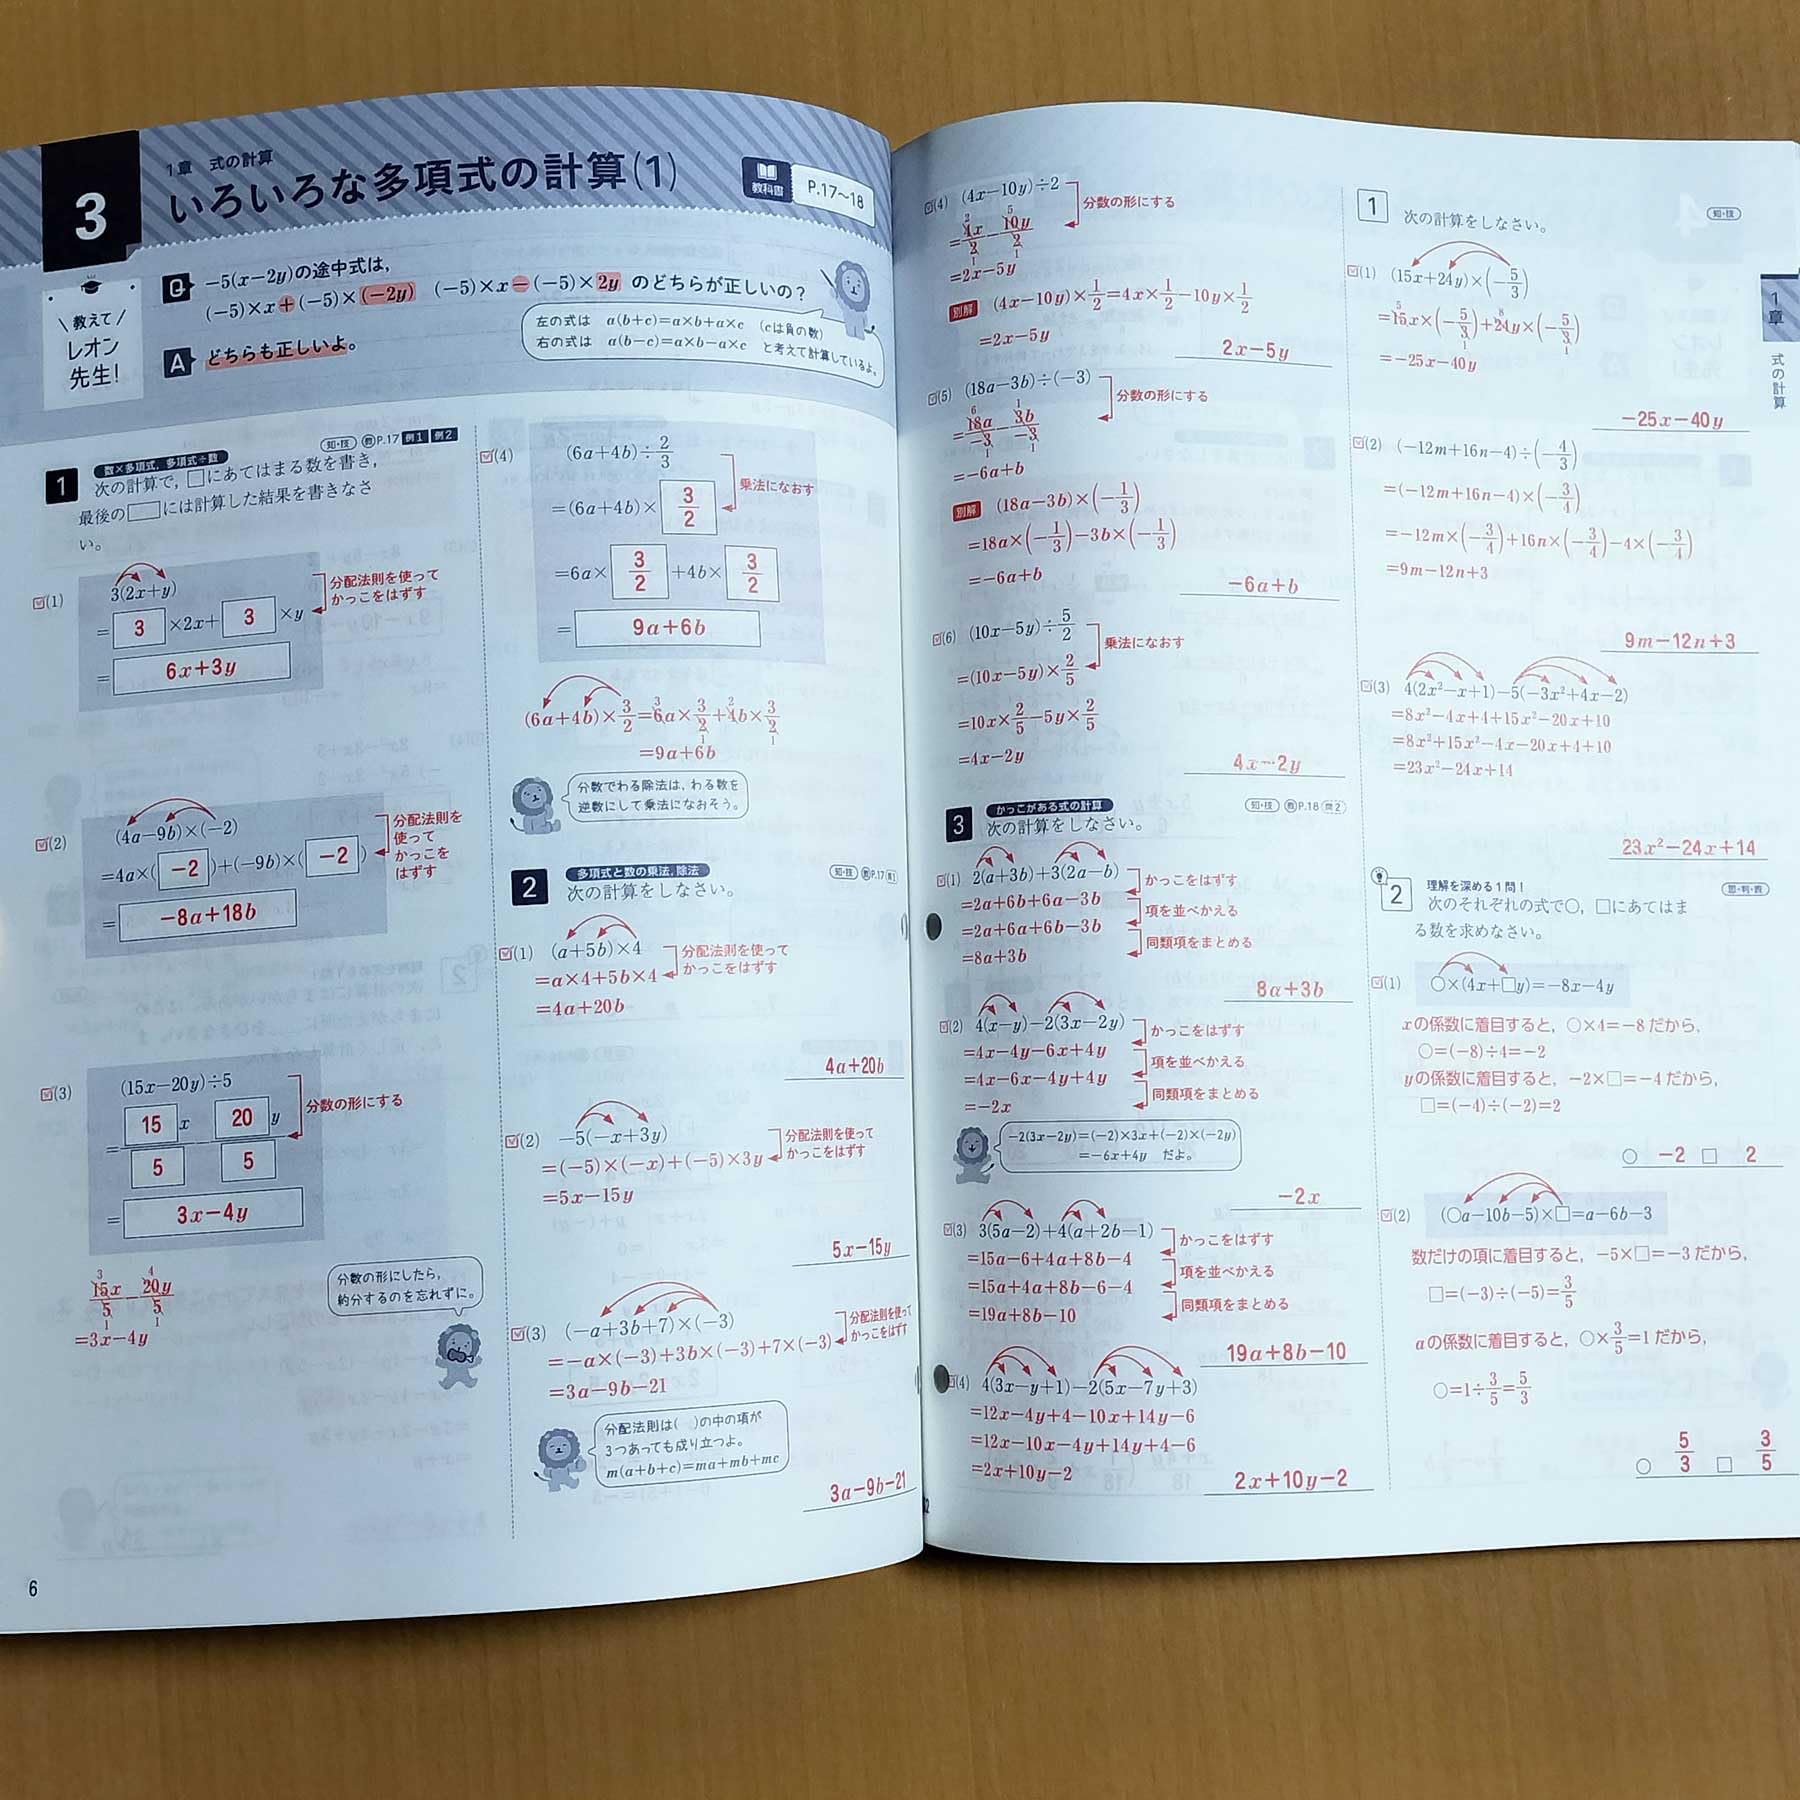 3
1章 式の計算
いろいろな多項式の計算(1)
教科書
P.17〜18
教えて
レオン
先生!
Q
−5(x−2y)の途中式は,
(−5)×x+(−5)×(−2y) (−5)×x−(−5)×2y のどちらが正しいの?
左の式は a(b+c)=a×b+a×c (cは負の数)
右の式は a(b−c)=a×b−a×c と考えて計算しているよ。
A
どちらも正しいよ。
知・技 教P.17 例1 例2
1
数×多項式, 多項式÷数
次の計算で, □にあてはまる数を書き,
最後の□には計算した結果を書きなさ
い。
(1)
3(2x+y)
分配法則を使って
かっこをはずす
= 3 ×2x+ 3 ×y
= 6x+3y
(2)
(4a−9b)×(−2)
分配法則を
使って
かっこを
はずす
=4a×( −2 )+(−9b)×( −2 )
= −8a+18b
(3)
(15x−20y)÷5
分数の形にする
= 15 x 20 y
5 5
= 3x−4y
3 4
15x − 20y
5 5
1 1
=3x−4y
分数の形にしたら,
約分するのを忘れずに。
(4)
(6a+4b)÷2/3
乗法になおす
=(6a+4b)× 3/2
=6a× 3/2 +4b× 3/2
= 9a+6b
(6a+4b)×3/2=6a×3/2+4b×3/2
=9a+6b
分数でわる除法は, わる数を
逆数にして乗法になおそう。
2
多項式と数の乗法, 除法
知・技 教P.17
次の計算をしなさい。
(1) (a+5b)×4
分配法則を使って
かっこをはずす
=a×4+5b×4
=4a+20b
4a+20b
(2) −5(−x+3y)
分配法則を使って
かっこをはずす
=(−5)×(−x)+(−5)×3y
=5x−15y
5x−15y
(3) (−a+3b+7)×(−3)
分配法則を使って
かっこをはずす
=−a×(−3)+3b×(−3)+7×(−3)
=3a−9b−21
分配法則は( )の中の項が
3つあっても成り立つよ。
m(a+b+c)=ma+mb+mc
3a−9b−21
6
(4) (4x−10y)÷2
分数の形にする
2 5
=4x/2−10y/2
1 1
=2x−5y
別解 (4x−10y)×1/2=4x×1/2−10y×1/2
=2x−5y
2x−5y
(5) (18a−3b)÷(−3)
分数の形にする
6 1
=18a/−3−3b/−3
1 1
=−6a+b
別解 (18a−3b)×(−1/3)
=18a×(−1/3)−3b×(−1/3)
=−6a+b
−6a+b
(6) (10x−5y)÷5/2
乗法になおす
=(10x−5y)×2/5
=10x×2/5−5y×2/5
=4x−2y
4x−2y
3
かっこがある式の計算
知・技 教P.18 問2
次の計算をしなさい。
(1) 2(a+3b)+3(2a−b)
かっこをはずす
=2a+6b+6a−3b
項を並べかえる
=2a+6a+6b−3b
同類項をまとめる
=8a+3b
8a+3b
(2) 4(x−y)−2(3x−2y)
かっこをはずす
=4x−4y−6x+4y
項を並べかえる
=4x−6x−4y+4y
同類項をまとめる
=−2x
−2(3x−2y)=(−2)×3x+(−2)×(−2y)
=−6x+4y だよ。
−2x
(3) 3(5a−2)+4(a+2b−1)
かっこをはずす
=15a−6+4a+8b−4
項を並べかえる
=15a+4a+8b−6−4
同類項をまとめる
=19a+8b−10
19a+8b−10
(4) 4(3x−y+1)−2(5x−7y+3)
=12x−4y+4−10x+14y−6
=12x−10x−4y+14y+4−6
=2x+10y−2
2x+10y−2
1
次の計算をしなさい。
知・技
(1) (15x+24y)×(−5/3)
5 8
=15x×(−5/3)+24y×(−5/3)
1 1
=−25x−40y
−25x−40y
(2) (−12m+16n−4)÷(−4/3)
=(−12m+16n−4)×(−3/4)
=−12m×(−3/4)+16n×(−3/4)−4×(−3/4)
=9m−12n+3
9m−12n+3
(3) 4(2x²−x+1)−5(−3x²+4x−2)
=8x²−4x+4+15x²−20x+10
=8x²+15x²−4x−20x+4+10
=23x²−24x+14
23x²−24x+14
2
理解を深める1問!
思・判・表
次のそれぞれの式で○, □にあてはま
る数を求めなさい。
(1) ○×(4x+□y)=−8x−4y
xの係数に着目すると, ○×4=−8だから,
○=(−8)÷4=−2
yの係数に着目すると, −2×□=−4だから,
□=(−4)÷(−2)=2
○ −2 □ 2
(2) (○a−10b−5)×□=a−6b−3
数だけの項に着目すると, −5×□=−3だから,
□=(−3)÷(−5)=3/5
aの係数に着目すると, ○×3/5=1だから,
○=1÷3/5=5/3
○ 5/3 □ 3/5
1章
式の計算